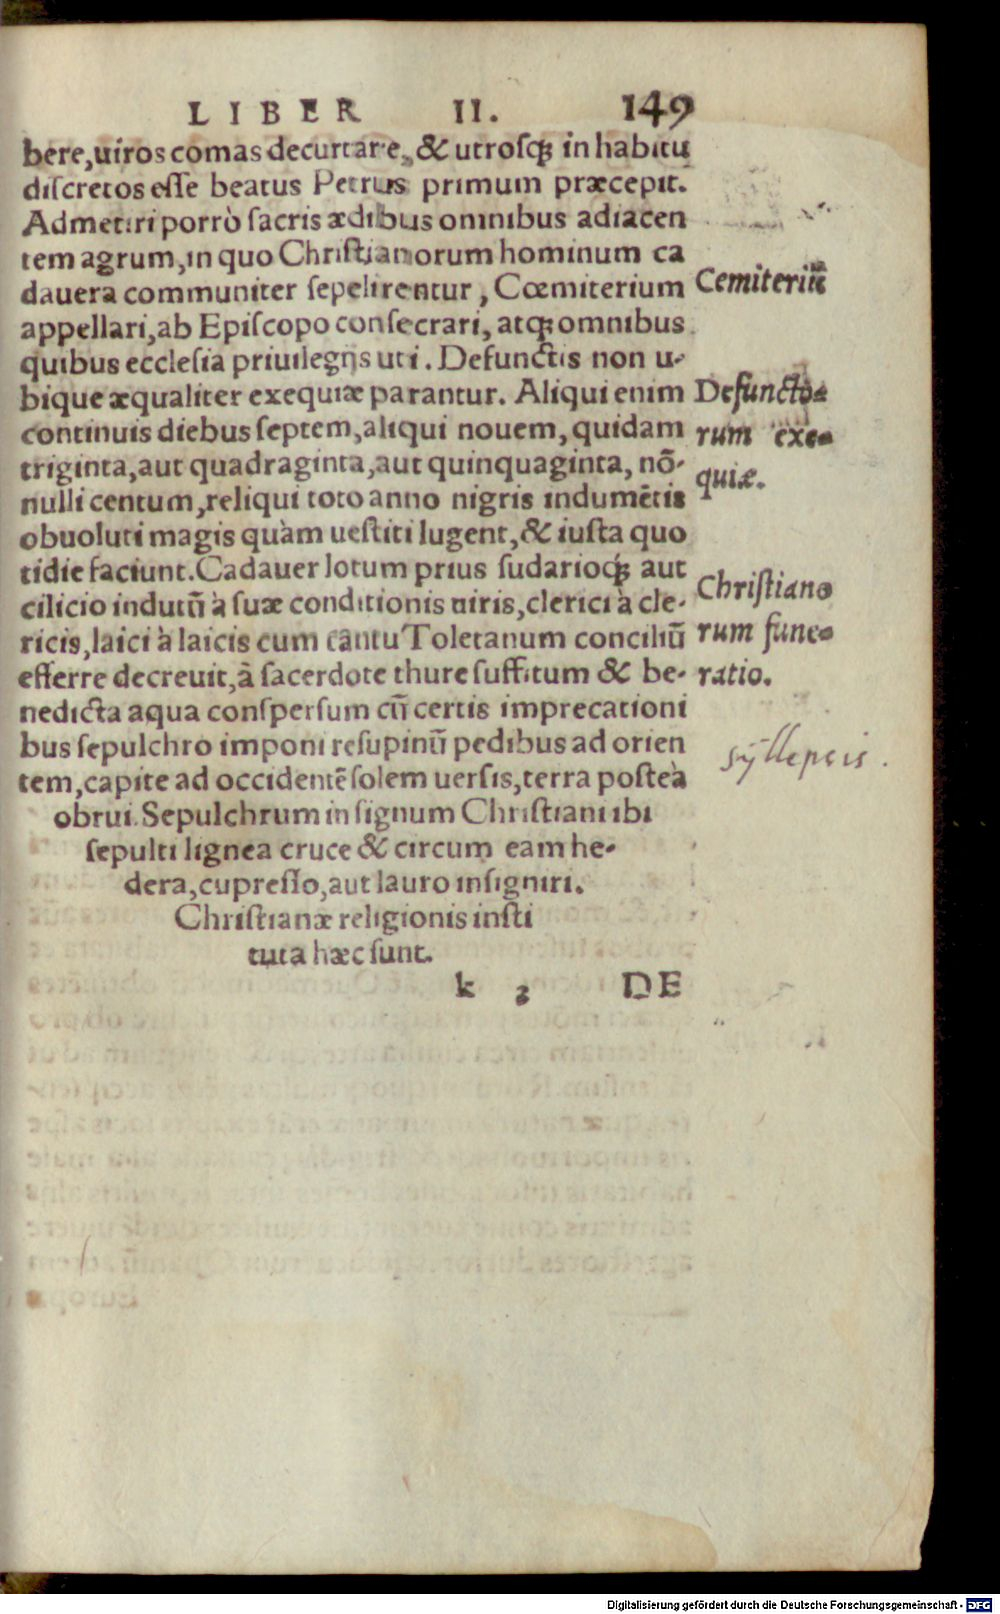 LIBER II. 149
bere,uiros comas decurtare, & utrosq́; in habitu
discretos esse beatus Petrus primum præcepit.
Admetiri porrò sacris ædibus omnibus adiacen
tem agrum,in quo Christianorum hominum ca
dauera communiter sepelirentur, Cœmiterium
appellari,ab Episcopo consecrari, atq; omnibus
quibus ecclesia priuilegijs uti. Defunctis non u-
bique æqualiter exequiæ parantur. Aliqui enim
continuis diebus septem,aliqui nouem, quidam
triginta,aut quadraginta,aut quinquaginta, nō-
nulli centum,reliqui toto anno nigris indumētis
obuoluti magis quàm uestiti lugent,& iusta quo
tidie faciunt. Cadauer lotum prius sudarioq́; aut
cilicio indutū à suæ conditionis uiris,clerici à cle-
ricis,laici à laicis cum cantu Toletanum conciliū
efferre decreuit,à sacerdote thure suffitum & be-
nedicta aqua conspersum cū certis imprecationi
bus sepulchro imponi resupinū pedibus ad orien
tem,capite ad occidentē solem uersis,terra posteà
obrui. Sepulchrum in signum Christiani ibi
sepulti lignea cruce & circum eam he-
dera,cupresso,aut lauro insigniri.
Christianæ religionis insti
tuta hæc sunt.
k 3 DE
Cemiteriū
Defuncto-
rum exe-
quiæ.
Christiano
rum fune-
ratio.
syllepsis.
Digitalisierung gefördert durch die Deutsche Forschungsgemeinschaft - DFG